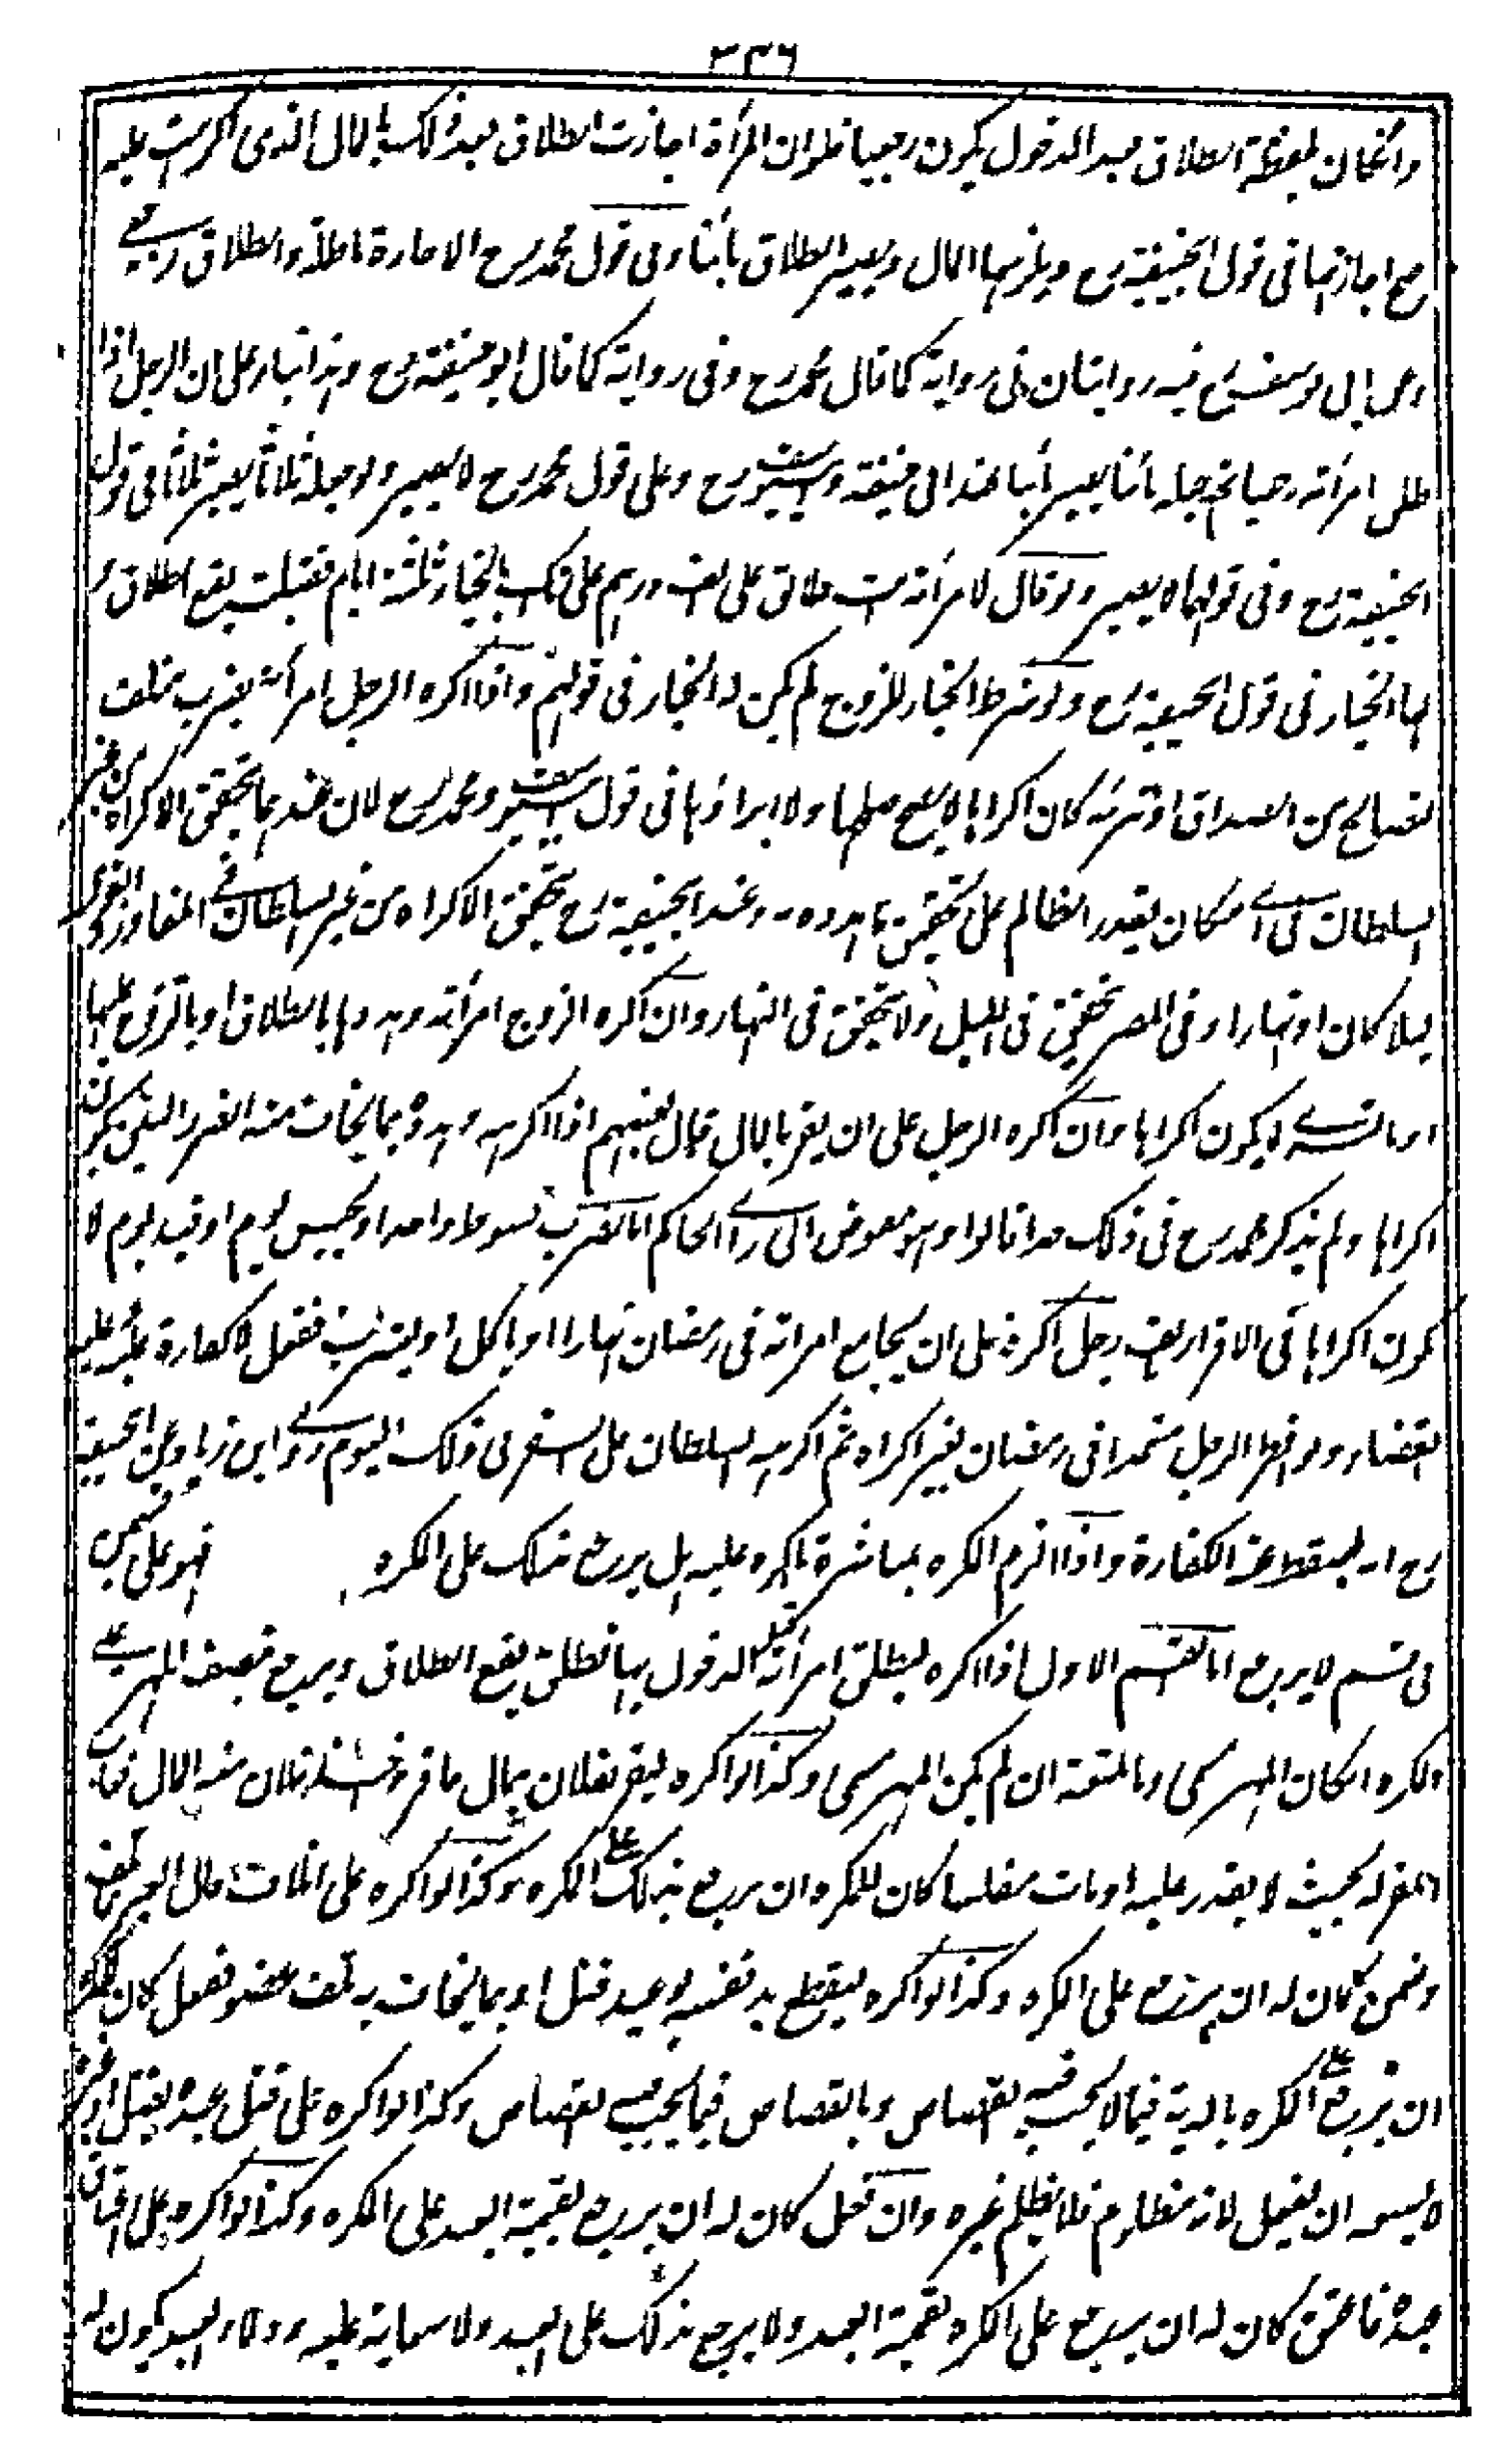 ٣٣٦
وانكان بلفظة الطلاق بعد الدخول يكون رجعيا فلو ان المرأة اجازت الطلاق بعد ذلك بالمال الذى اكرهت عليه
صح اجازتها فى قول ابيحنيفة رح ويلزمها المال ويصير الطلاق بائنا وفى قول محمد رح الاجازة باطلة والطلاق رجعى
وعن ابى يوسف رح فيه روايتان فى رواية كما قال محمد رح وفى رواية كما قال ابو حنيفة رح وهذا بناء على ان الرجل اذا
طلق امرأته رجعيا ثم جعله بائنا يصير بائنا عند ابى حنيفة وابى يوسف رح وعلى قول محمد رح لا يصير ولو جعله ثلاثا يصير ثلاثا فى قول
ابيحنيفة رح وفى قولهما لا يصير ولو قال لامرأته انت طالق على الف درهم على انك بالخيار ثلثة ايام فقبلت يقع الطلاق و
لها الخيار فى قول ابيحنيفة رح ولو شرط الخيار للزوج لم يكن له الخيار فى قولهم واذا اكره الرجل امرأته بضرب متلف
لتصالح من الصداق او تبرئه كان اكراها لا يصح صلحها ولا ابراؤها فى قول ابى يوسف ومحمد رح لان عندهما يتحقق الاكراه من غير
السلطان فى اى مكان يقدر الظالم على تحقيق ما هدده به وعند ابيحنيفة رح يتحقق الاكراه من غير السلطان فى المفاوز والقرى
ليلا كان او نهارا وفى المصر يتحقق فى الليل ولا يتحقق فى النهار وان اكره الزوج امرأته وهددها بالطلاق او بالتزوج عليها
او بالتسرى لا يكون اكراها وان اكره الرجل على ان يقر بالمال قال بعضهم اذا اكرهه وهدده بما يخاف منه الضرر البين يكون
اكراها ولم يذكر محمد رح فى ذلك حدا قالوا وهو مفوض الى رأى الحاكم اما الضرب بسوط واحد او بحبس يوم او قيد يوم لا
يكون اكراها فى الاقرار بالف رجل اكره على ان يجامع امرأته فى رمضان نهارا او ياكل او يشرب ففعل لا كفارة عليه وعليه
القضاء ولو افطر الرجل متعمدا فى رمضان بغير اكراه ثم اكرهه السلطان على السفر فى ذلك اليوم روى ابن زياد عن ابيحنيفة
رح انه يسقط عنه الكفارة واذا لزم المكره بمباشرة ما اكره عليه هل يرجع بذلك على المكره فهو على قسمين
فى قسم لا يرجع اما القسم الاول اذا اكره ليطلق امرأته قبل الدخول بها فطلق يقع الطلاق ويرجع بنصف المهر على
المكره ان كان المهر مسمى وبالمتعة ان لم يكن المهر مسمى وكذا لو اكره ليقر لفلان بمال فاقر فاخذ فلان منه المال فغاب
المقر له بحيث لا يقدر عليه او مات مفلسا كان للمكره ان يرجع بذلك على المكره وكذا لو اكره على اتلاف مال الغير فاتلفه
وضمن كان له ان يرجع على المكره وكذا لو اكره ليقطع يد نفسه بوعيد قتل او بما يخاف به تلف عضو ففعل كان للمكره
ان يرجع على المكره بالدية فيما لا يجب فيه القصاص وبالقصاص فيما يجب فيه القصاص وكذا لو اكره على قتل عبده بقتل او غيره
لا يسعه ان يفعل لانه مظلوم فلا يظلم غيره وان قتل كان له ان يرجع بقيمة العبد على المكره وكذا لو اكره على اعتاق
عبده فاعتق كان له ان يرجع على المكره بقيمة العبد ولا يرجع بذلك على العبد ولا سعاية عليه وولاء العبد يكون له